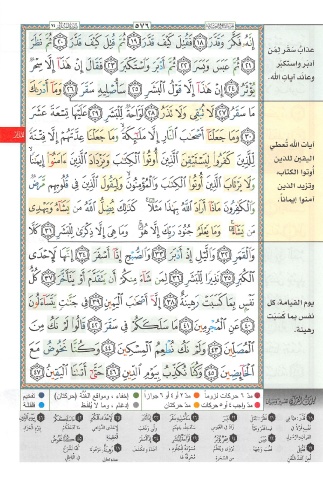 ٥٧٦
إِنَّهُۥ فَكَّرَ وَقَدَّرَ ١٨ فَقُتِلَ كَيْفَ قَدَّرَ ١٩ ثُمَّ قُتِلَ كَيْفَ قَدَّرَ ٢٠ ثُمَّ نَظَرَ
٢١ ثُمَّ عَبَسَ وَبَسَرَ ٢٢ ثُمَّ أَدْبَرَ وَٱسْتَكْبَرَ ٢٣ فَقَالَ إِنْ هَٰذَآ إِلَّا سِحْرٌ
يُؤْثَرُ ٢٤ إِنْ هَٰذَآ إِلَّا قَوْلُ ٱلْبَشَرِ ٢٥ سَأُصْلِيهِ سَقَرَ ٢٦ وَمَآ أَدْرَىٰكَ
مَا سَقَرُ ٢٧ لَا تُبْقِى وَلَا تَذَرُ ٢٨ لَوَّاحَةٌ لِّلْبَشَرِ ٢٩ عَلَيْهَا تِسْعَةَ عَشَرَ
٣٠ وَمَا جَعَلْنَآ أَصْحَٰبَ ٱلنَّارِ إِلَّا مَلَٰٓئِكَةً وَمَا جَعَلْنَا عِدَّتَهُمْ إِلَّا فِتْنَةً
لِّلَّذِينَ كَفَرُوا۟ لِيَسْتَيْقِنَ ٱلَّذِينَ أُوتُوا۟ ٱلْكِتَٰبَ وَيَزْدَادَ ٱلَّذِينَ ءَامَنُوٓا۟ إِيمَٰنًا
وَلَا يَرْتَابَ ٱلَّذِينَ أُوتُوا۟ ٱلْكِتَٰبَ وَٱلْمُؤْمِنُونَ وَلِيَقُولَ ٱلَّذِينَ فِى قُلُوبِهِم مَّرَضٌ
وَٱلْكَٰفِرُونَ مَاذَآ أَرَادَ ٱللَّهُ بِهَٰذَا مَثَلًا كَذَٰلِكَ يُضِلُّ ٱللَّهُ مَن يَشَآءُ وَيَهْدِى
مَن يَشَآءُ وَمَا يَعْلَمُ جُنُودَ رَبِّكَ إِلَّا هُوَ وَمَا هِىَ إِلَّا ذِكْرَىٰ لِلْبَشَرِ ٣١ كَلَّا
وَٱلْقَمَرِ ٣٢ وَٱلَّيْلِ إِذْ أَدْبَرَ ٣٣ وَٱلصُّبْحِ إِذَآ أَسْفَرَ ٣٤ إِنَّهَا لَإِحْدَى
ٱلْكُبَرِ ٣٥ نَذِيرًا لِّلْبَشَرِ ٣٦ لِمَن شَآءَ مِنكُمْ أَن يَتَقَدَّمَ أَوْ يَتَأَخَّرَ ٣٧ كُلُّ
نَفْسٍۭ بِمَا كَسَبَتْ رَهِينَةٌ ٣٨ إِلَّآ أَصْحَٰبَ ٱلْيَمِينِ ٣٩ فِى جَنَّٰتٍ يَتَسَآءَلُونَ
٤٠ عَنِ ٱلْمُجْرِمِينَ ٤١ مَا سَلَكَكُمْ فِى سَقَرَ ٤٢ قَالُوا۟ لَمْ نَكُ مِنَ
ٱلْمُصَلِّينَ ٤٣ وَلَمْ نَكُ نُطْعِمُ ٱلْمِسْكِينَ ٤٤ وَكُنَّا نَخُوضُ مَعَ
ٱلْخَآئِضِينَ ٤٥ وَكُنَّا نُكَذِّبُ بِيَوْمِ ٱلدِّينِ ٤٦ حَتَّىٰٓ أَتَىٰنَا ٱلْيَقِينُ ٤٧
عذاب سقر لمن
أدبر واستكبر
وعاند آيات الله.
عدة أصحاب النار تُعطي
اليقين للذين
أوتوا الكتاب،
وتزيد الذين
آمنوا إيماناً.
يوم القيامة، كل
نفس بما كسبت
رهينة.
مدّ ٦ حركات لزوماً
مدّ ٢ أو ٤ أو ٦ جوازاً
إخفاء، ومواقع الغُنَّة (حركتان)
تفخيم
مدّ واجب ٤ أو ٥ حركات
مدّ حركتان
إدغام، وما لا يُلفظ
قلقلة